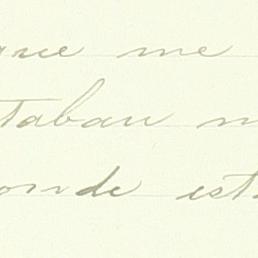 que me
taban m
onde est